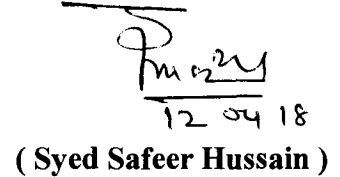 12 04 18
( Syed Safeer Hussain )